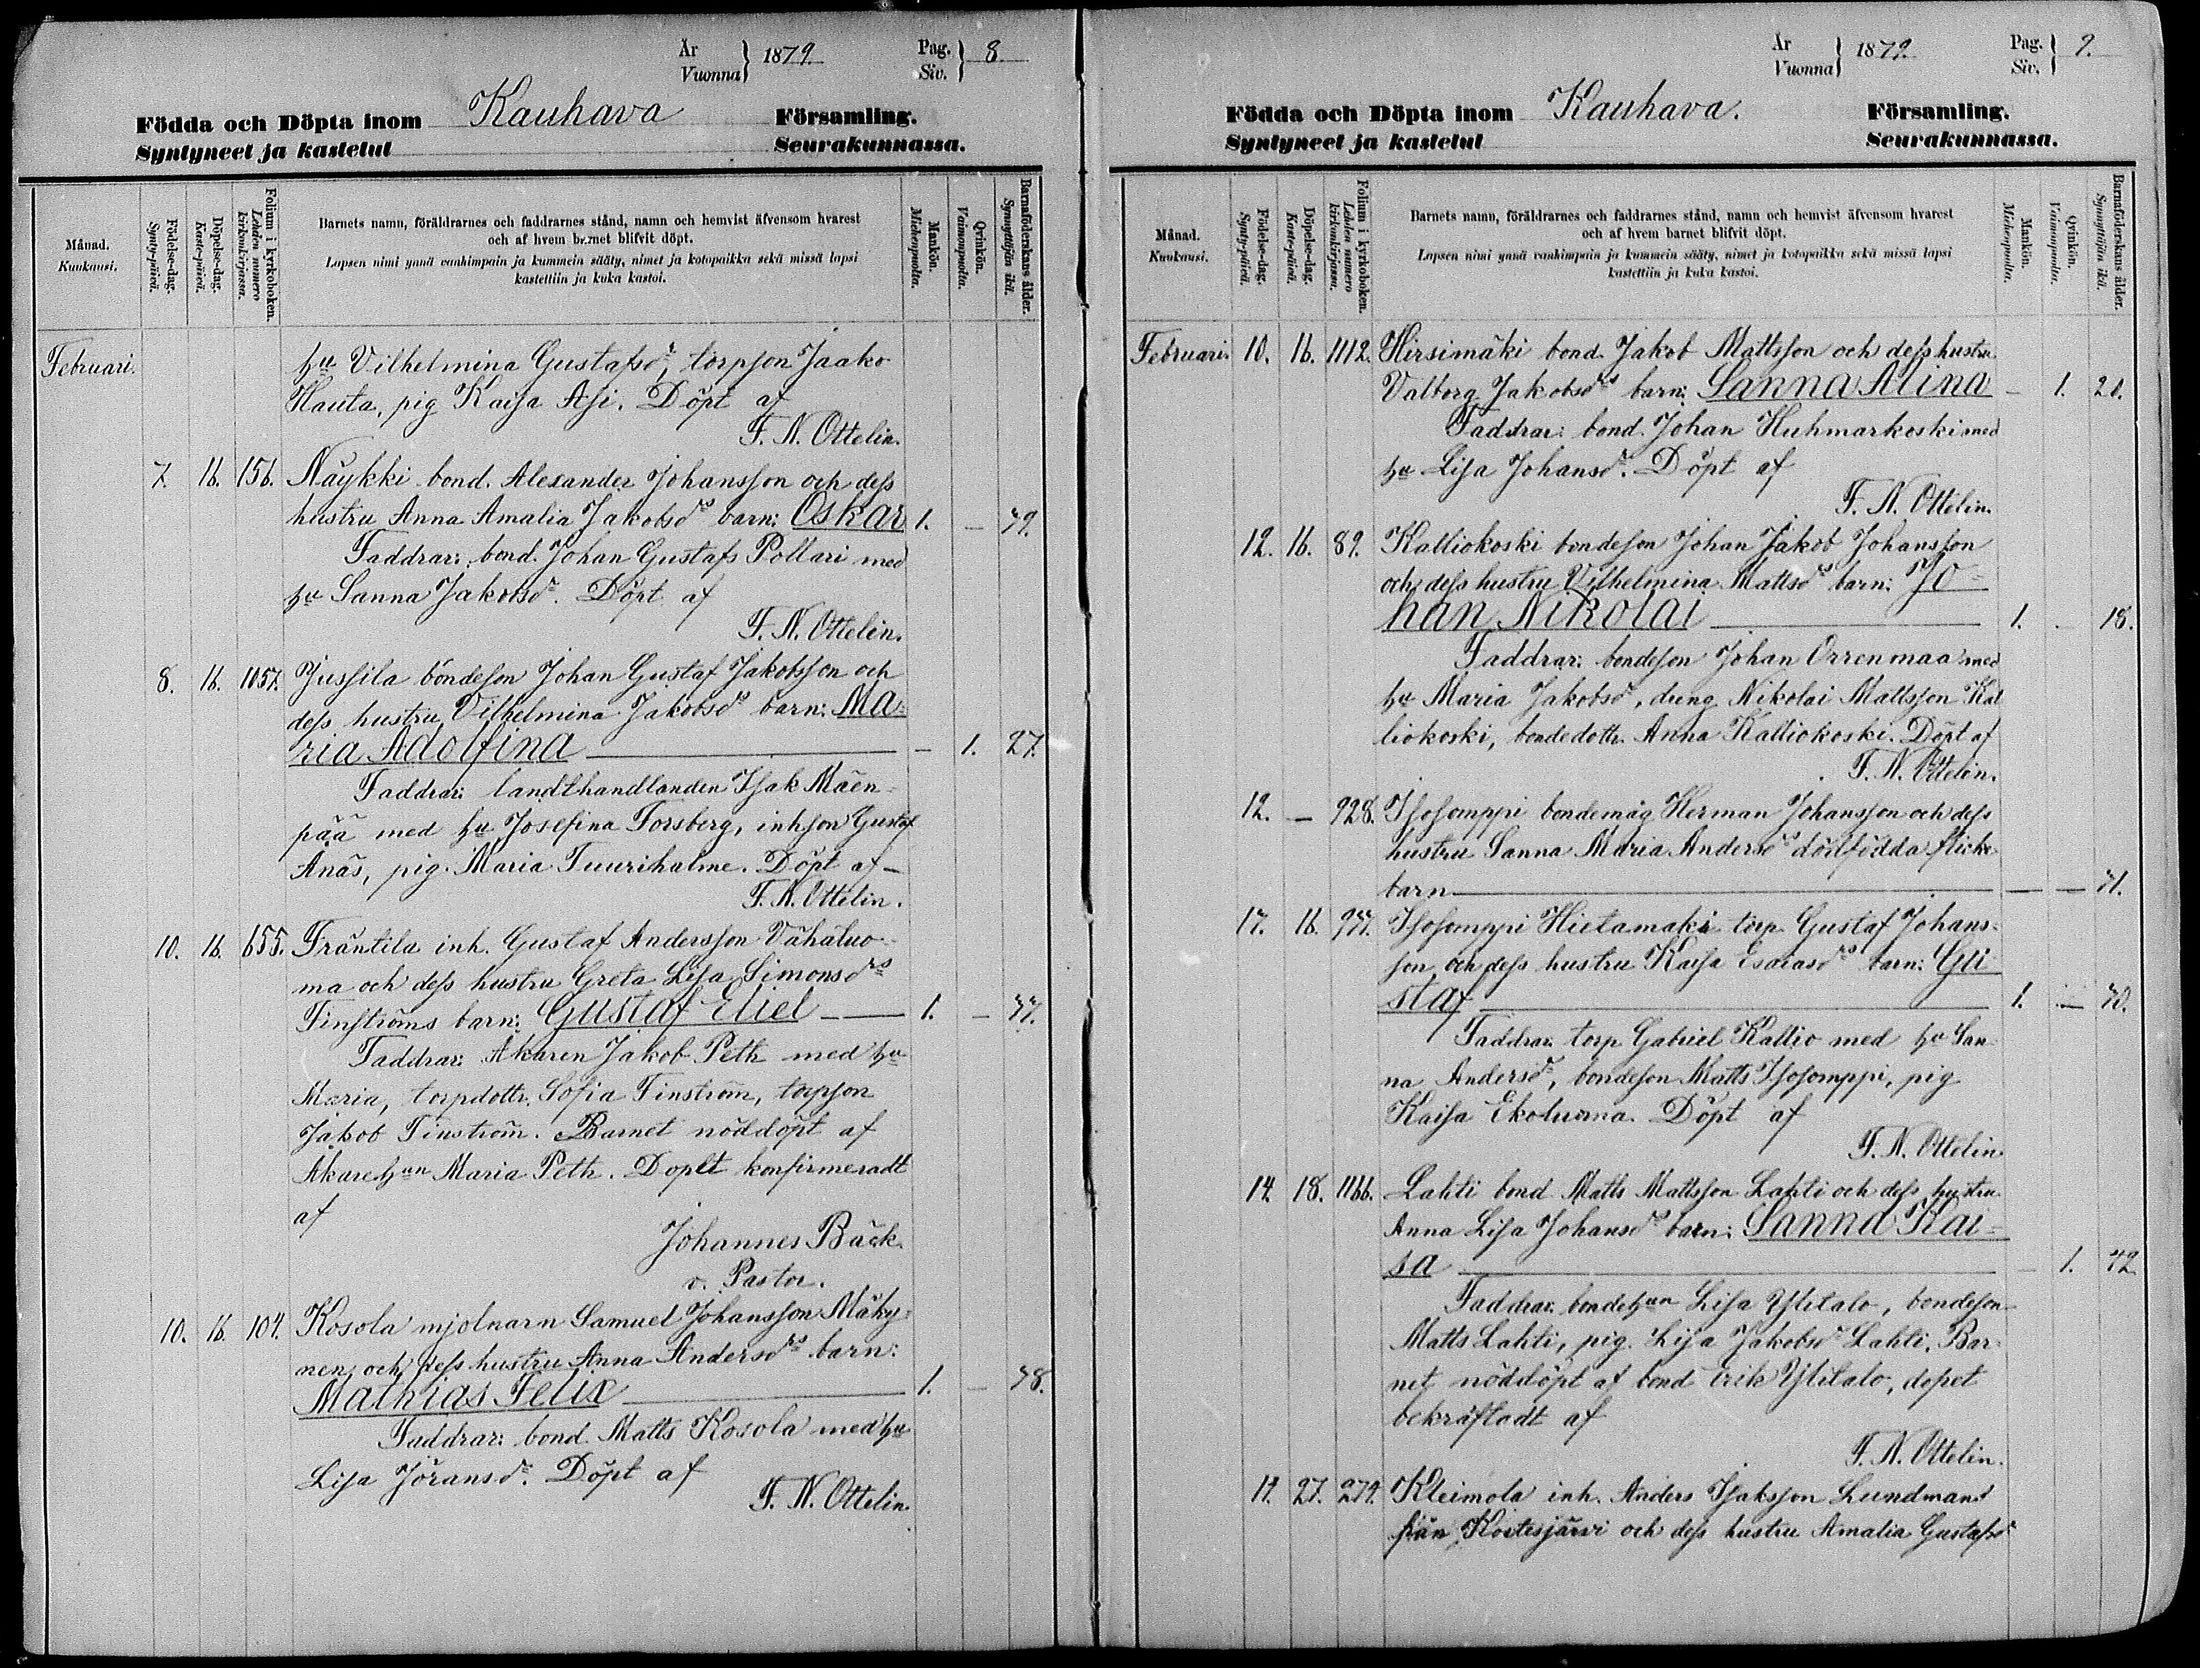 År
Vuonna } 1879.
Pag.
Siv. } 8.
Födda och Döpta inom Kauhava Församling.
Syntyneet ja kastetut Seurakunnassa.
Månad.
Kuukausi.
Födelse-dag.
Synty-päivä.
Döpelse-dag.
Kaste-päivä.
Folium i kyrkoboken.
Lehden numero kirkonkirjassa.
Barnets namn, föräldrarnes och faddrarnes stånd, namn och hemvist äfvensom hvarest
och af hvem barnet blifvit döpt.
Lapsen nimi ynnä vanhimpain ja kummein sääty, nimet ja kotopaikka sekä missä lapsi
kastettiin ja kuka kastoi.
Mankön.
Miehenpuolta.
Qvinkön.
Vaimonpuolta.
Barnaföderskans ålder.
Synnyttäjän ikä.
Februari. hu Vilhelmina Gustafsdr, torpson Jaako
Hauta, pig Kaisa Asi. Döpt af
F. N. Ottelin.
7. 16. 156. Näykki bond. Alexander Johansson och dess
hustru Anna Amalia Jakobsdrs barn: Oskar 1. — 39.
Faddrar: bond. Johan Gustafs Pollari med
hu Sanna Jakobsdr. Döpt af
F. N. Ottelin.
8. 16. 1057. Jussila bondeson Johan Gustaf Jakobsson och
dess hustru Vilhelmina Jakobsdrs barn: Ma-
ria Adolfina — — 1. 27.
Faddrar: landthandlanden Isak Mäen-
pää med hu Josefina Forsberg, inhson Gustaf
Änäs, pig. Maria Tuuriholme. Döpt af —
F. N. Ottelin.
10. 16. 655. Fräntilä inh. Gustaf Andersson Vähäluo-
ma och dess hustru Greta Lisa Simonsdrs
Finströms barn: Gustaf Eliel — 1. — 37.
Faddrar: Åkaren Jakob Peth med hu
Maria, torpdottr. Sofia Finström, torpson
Jakob Finström. Barnet nöddöpt af
Åkarehun Maria Peth. Dopet konfirmeradt
af
Johannes Bäck.
v. Pastor.
10. 16. 104. Kosola mjölnarn Samuel Johansson Mäky-
nen och dess hustru Anna Andersdrs barn:
Mathias Felix — 1. — 38.
Faddrar: bond. Matts Kosola med hu
Lisa Jöransdr. Döpt af
F. N. Ottelin.
År
Vuonna } 1879.
Pag.
Siv. } 9.
Födda och Döpta inom Kauhava. Församling.
Syntyneet ja kastetut Seurakunnassa.
Månad.
Kuukausi.
Födelse-dag.
Synty-päivä.
Döpelse-dag.
Kaste-päivä.
Folium i kyrkoboken.
Lehden numero kirkonkirjassa.
Barnets namn, föräldrarnes och faddrarnes stånd, namn och hemvist äfvensom hvarest
och af hvem barnet blifvit döpt.
Lapsen nimi ynnä vanhimpain ja kummein sääty, nimet ja kotopaikka sekä missä lapsi
kastettiin ja kuka kastoi.
Mankön.
Miehenpuolta.
Qvinkön.
Vaimonpuolta.
Barnaföderskans ålder.
Synnyttäjän ikä.
Februari. 10. 16. 1112. Hirsimäki bond. Jakob Mattsson och dess hustru
Valborg Jakobsdrs barn: Sanna Alina — 1. 20.
Faddrar: bond. Johan Huhmarkoski med
hu Lisa Johansdr. Döpt af
F. N. Ottelin.
12. 16. 89. Kalliokoski bondeson Johan Jakob Johansson
och dess hustru Vilhelmina Mattsdrs barn: Jo-
han Nikolai — 1. — 18.
Faddrar: bondeson Johan Orrenmaa med
hu Maria Jakobsdr, dreng Nikolai Mattsson Kal
liokoski, bondedottr. Anna Kalliokoski. Döpt af
F. N. Ottelin.
12. — 928. Isosomppi bondemåg Herman Johansson och dess
hustru Sanna Maria Andersdrs dödfödda flicke
barn — — — 31.
17. 18. 937. Isosomppi Hietamäki torp. Gustaf Johans-
son och dess hustru Kaisa Esaiasdrs barn: Gu
staf — 1. — 30.
Faddrar: torp. Gabriel Kallio med hu San-
na Andersdr, bondeson Matts Isosomppi, pig
Kaisa Ekoluoma. Döpt af
F. N. Ottelin.
14. 18. 1166. Lahti bond Matts Mattsson Lahti och dess hustru
Anna Lisa Johansdrs barn: Sanna Kai-
sa — — 1. 42
Faddrar: bondehun Lisa Ylitalo, bondeson
Matts Lahti, pig. Lisa Jakobsdr Lahti. Bar-
net nöddöpt af bond Erik Ylitalo, dopet
bekräftadt af
F. N. Ottelin.
14. 27. 274. Kleimola inh. Anders Isaksson Lundman
från Kortesjärvi och dess hustru Amalia Gustafsdr